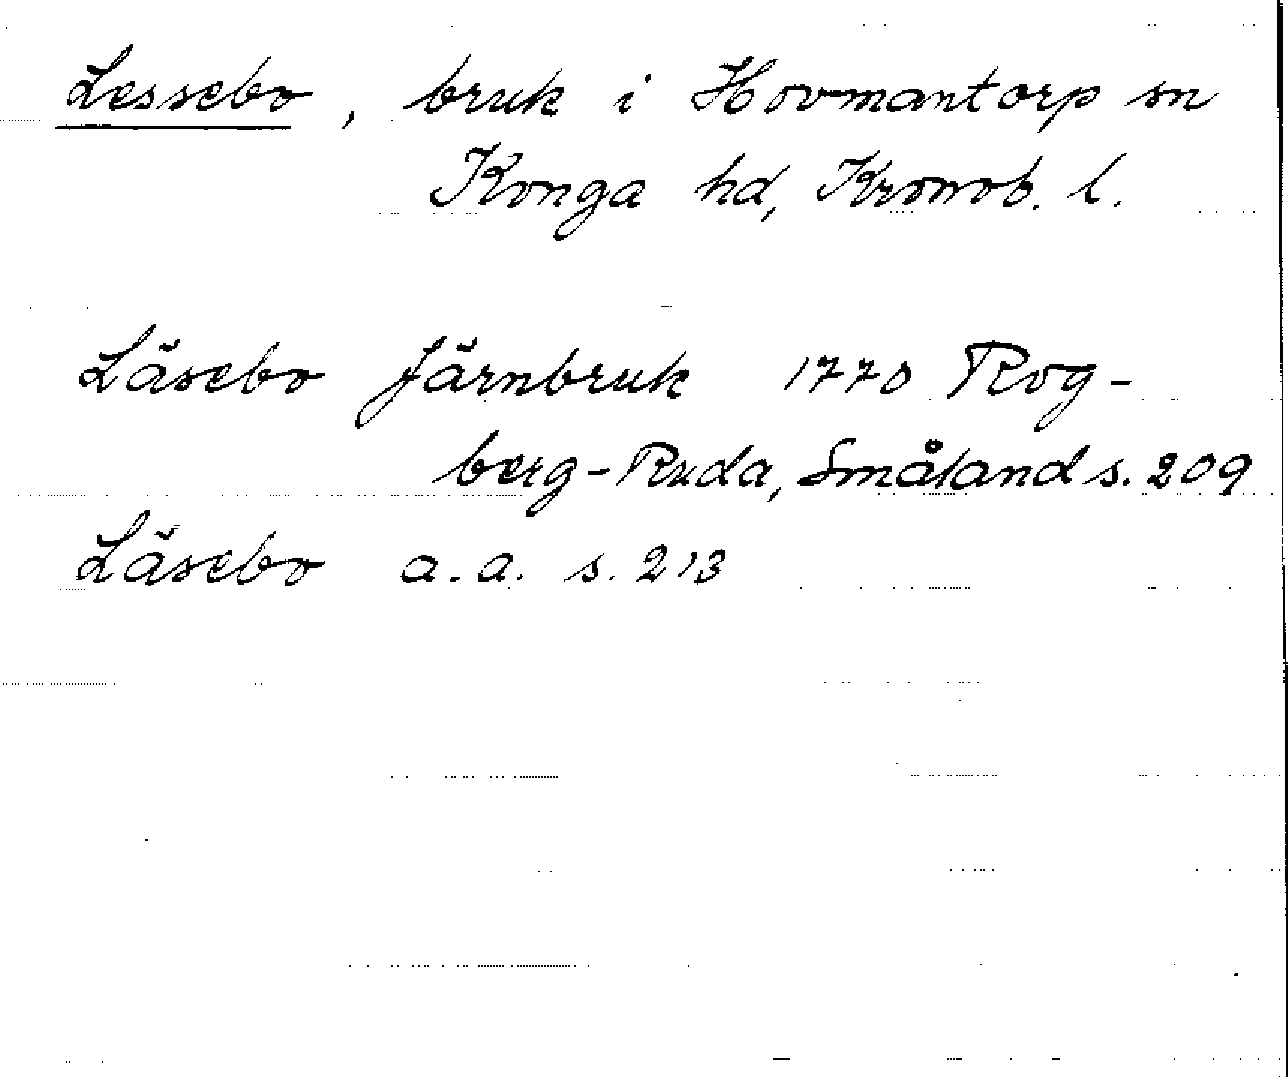 Lessebo, bruk i Hovmantorp sn
Konga hd, Kronob. l.
Läsebo Järnbruk 1770 Rog-
berg-Ruda, Småland s. 209
Läsebo a.a. s. 213